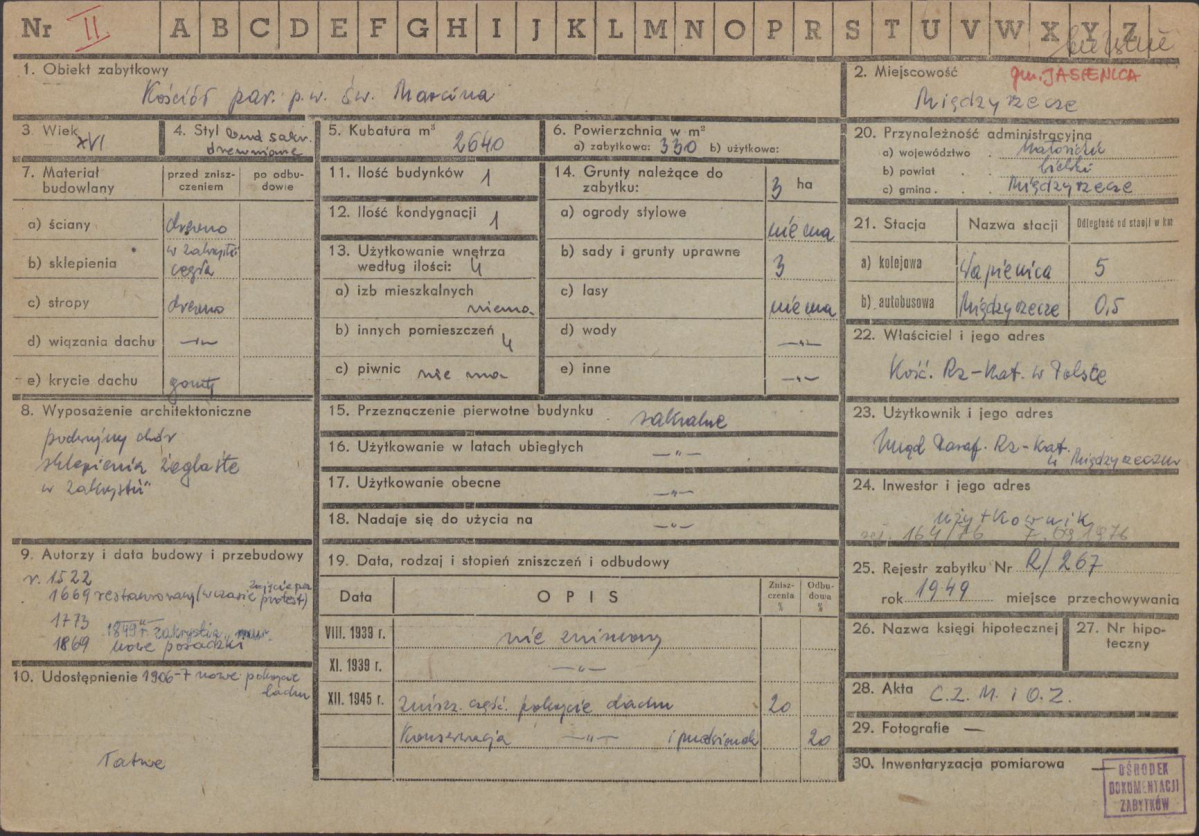 Nr II A B C D E F G H I J K L M N O P R S T U V W X Y Z
1. Obiekt zabytkowy
Kościół par. p.w. Św. Marcina
2. Miejscowość gm. JASIENICA
Międzyrzecze
3. Wiek
XVI
4. Styl bud. sakr.
drewniane
5. Kubatura m³
2640
6. Powierzchnia w m²
a) zabytkowa: 330 b) użytkowa:
7. Materiał
budowlany
przed znisz-
czeniem
po odbu-
dowie
a) ściany drewno
b) sklepienia w zakrystii
cegła
c) stropy drewno
d) wiązania dachu —„—
e) krycie dachu gonty
8. Wyposażenie architektoniczne
podwójny chór
sklepienia żaglaste
w zakrystii"
9. Autorzy i data budowy i przebudowy
r. 1522
1669 restaurowany (w czasie zajęcia prz. protest)
1773
1849 r zakrystia mur.
1869 nowe posadzki
10. Udostępnienie 1906-7 nowe pokrycie
dachu
Łatwe
11. Ilość budynków 1
12. Ilość kondygnacji
1
13. Użytkowanie wnętrza
według ilości: 4
a) izb mieszkalnych
niema
b) innych pomieszczeń
4
c) piwnic nie ma
14. Grunty należące do
zabytku: 3 ha
a) ogrody stylowe
nie ma
b) sady i grunty uprawne
3
c) lasy
nie ma
d) wody
—„—
e) inne
—„—
15. Przeznaczenie pierwotne budynku sakralne
16. Użytkowanie w latach ubiegłych —„—
17. Użytkowanie obecne —„—
18. Nadaje się do użycia na —„—
19. Data, rodzaj i stopień zniszczeń i odbudowy
Data OPIS Znisz-
czenia
%
Odbu-
dowa
%
VIII. 1939 r. nie zniszczony
XI. 1939 r. —„—
XII. 1945 r. Zniszcz. część. pokrycie dachu 20
Konserwacja —„— i przedsionek 20
20. Przynależność administracyjna
a) województwo Katowickie
b) powiat bielski
c) gmina Międzyrzecze
21. Stacja Nazwa stacji Odległość od stacji w km
a) kolejowa Wapienica 5
b) autobusowa Międzyrzecze 0,5
22. Właściciel i jego adres
Kość. Rz-Kat. w Polsce
23. Użytkownik i jego adres
Urząd Paraf. Rz-Kat.
w Międzyrzeczu
24. Inwestor i jego adres
użytkownik
rej. 164/76 7.09.1976
25. Rejestr zabytku Nr R/267
rok 1949 miejsce przechowywania
26. Nazwa księgi hipotecznej
27. Nr hipo-
teczny
28. Akta C.Z.M. i O.Z.
29. Fotografie —
30. Inwentaryzacja pomiarowa —
OŚRODEK
DOKUMENTACJI
ZABYTKÓW